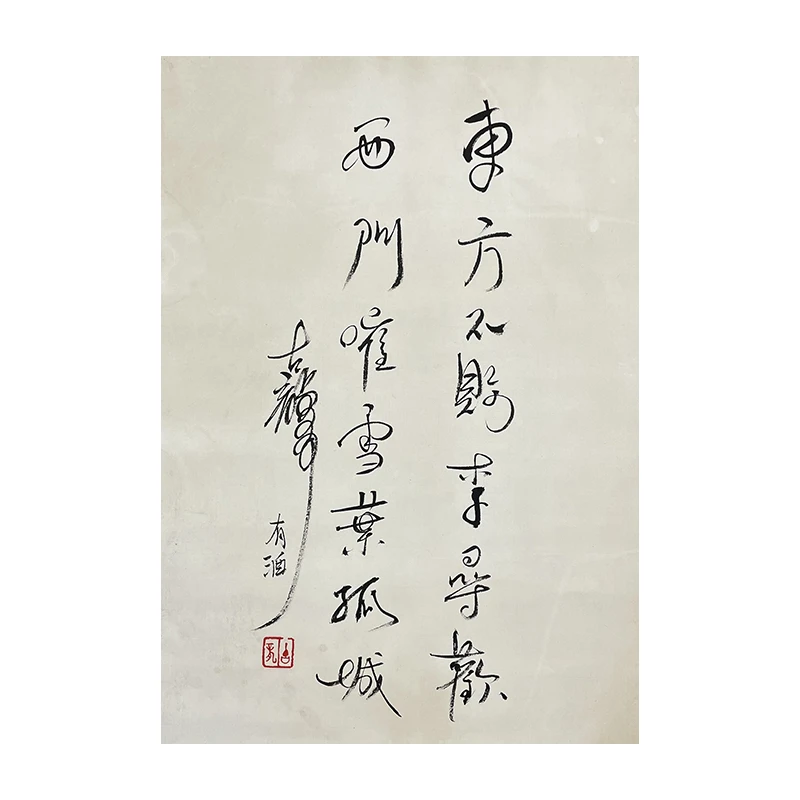 東方不敗李尋歡
西門吹雪葉孤城
古龍
有酒